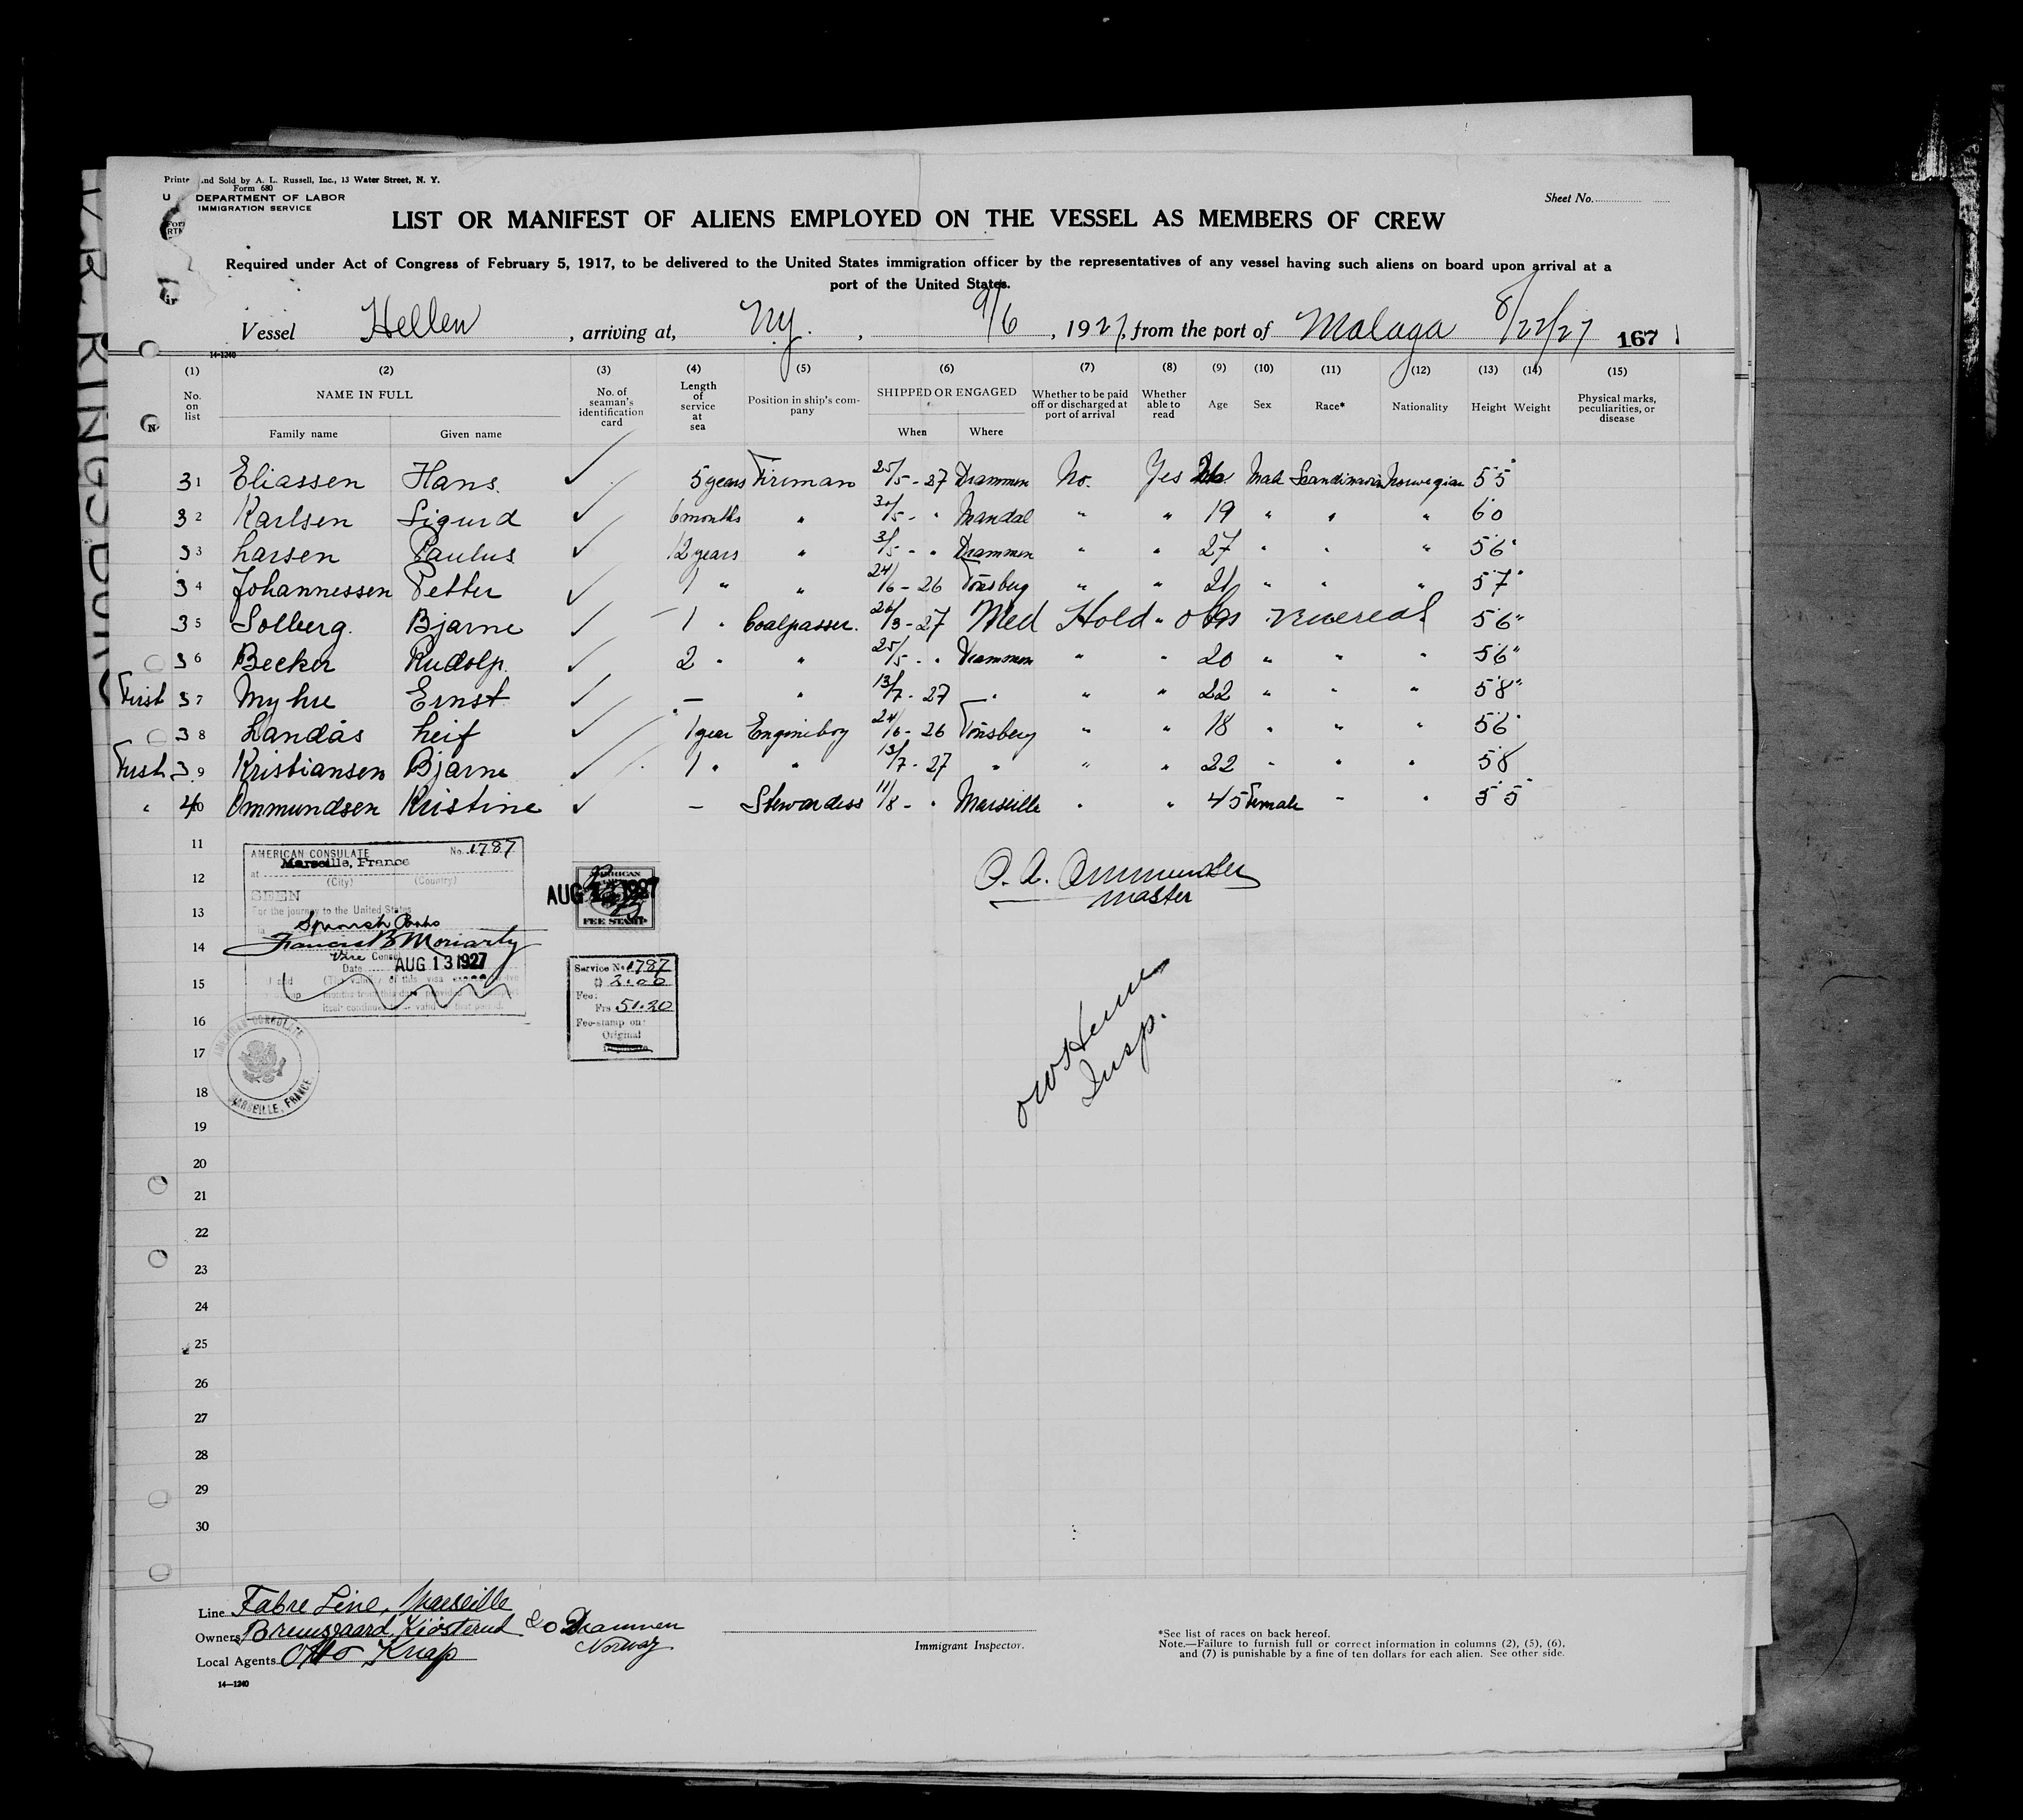 Form 680
DEPARTMENT OF LABOR
IMMIGRATION SERVICE
Sold by A. L. Russell, Inc., 13 Water Street, N. Y.
Sheet No.
LIST OR MANIFEST OF ALIENS EMPLOYED ON THE VESSEL AS MEMBERS OF CREW
Required under Act of Congress of February 5, 1917, to be delivered to the United States immigration officer by the representatives of any vessel having such aliens on board upon arrival at a
port of the United States.
Vessel Hellen, arriving at, Ny., 9/6, 1927, from the port of Malaga 8/22/27 167
14-1240
(1) (2) (3) (4) (5) (6) (7) (8) (9) (10) (11) (12) (13) (14) (15)
No. on list
NAME IN FULL
Family name Given name
No. of seaman's identification card
Length of service at sea
Position in ship's company
SHIPPED OR ENGAGED
When Where
Whether to be paid off or discharged at port of arrival
Whether able to read
Age Sex Race* Nationality Height Weight
Physical marks, peculiarities, or disease
31 Eliassen Hans. ✓ 5 years Fireman 25/5 - 27 Drammen No. Yes Male Scandinavian Norwegian 5'5"
32 Karlsen Sigurd ✓ 6 months " 30/5 - " Mandal " " 19 " " " 6'0
33 Larsen Paulus ✓ 12 years " 3/5 - " Drammen " " 27 " " " 5'6"
34 Johannessen Petter ✓ 1 " " 24/6 - 26 Tönsberg " " 21 " " " 5'7"
35 Solberg. Bjarne ✓ 1 " Coalpasser. 26/3 - 27 Med Hold " obs venereal 5'6"
36 Becker Rudolp. ✓ 2 " " 25/5 - " Drammen " " 20 " " " 5'6"
First 37 Myhre Ernst ✓ — " 13/7 - 27 — " " " 22 " " " 5'8"
38 Landås Leif ✓ 1 year Engineboy 24/6 - 26 Tönsberg " " 18 " " " 5'6"
First 39 Kristiansen Bjarne ✓ 1 " " 13/7 - 27 " " " 22 " " " 5'8
" 40 Ommundsen Kristine ✓ - Stewardess 11/8 - " Marseille " " 45 Female " " 5'5"
11
12
13
14
15
16
17
18
19
20
21
22
23
24
25
26
27
28
29
30
AMERICAN CONSULATE No. 1787
at Marseille, France
(City) (Country)
SEEN
For the journey to the United States
Francis B Moriarty
Vice Consul
Date AUG 13 1927
AMERICAN CONSULATE
MARSEILLE, FRANCE
AMERICAN
FEE STAMP
Service No 1787
$ 2.00
Fee:
Frs 51.20
Fee-stamp on:
Original
O. A. Ommundsen
Master
Insp.
Line Fabre Line, Marseille
Owners Bruusgaard, Kiösterud & Co Drammen
Norway
Local Agents Otto Knap
14—1240
Immigrant Inspector.
*See list of races on back hereof.
Note.—Failure to furnish full or correct information in columns (2), (5), (6),
and (7) is punishable by a fine of ten dollars for each alien. See other side.